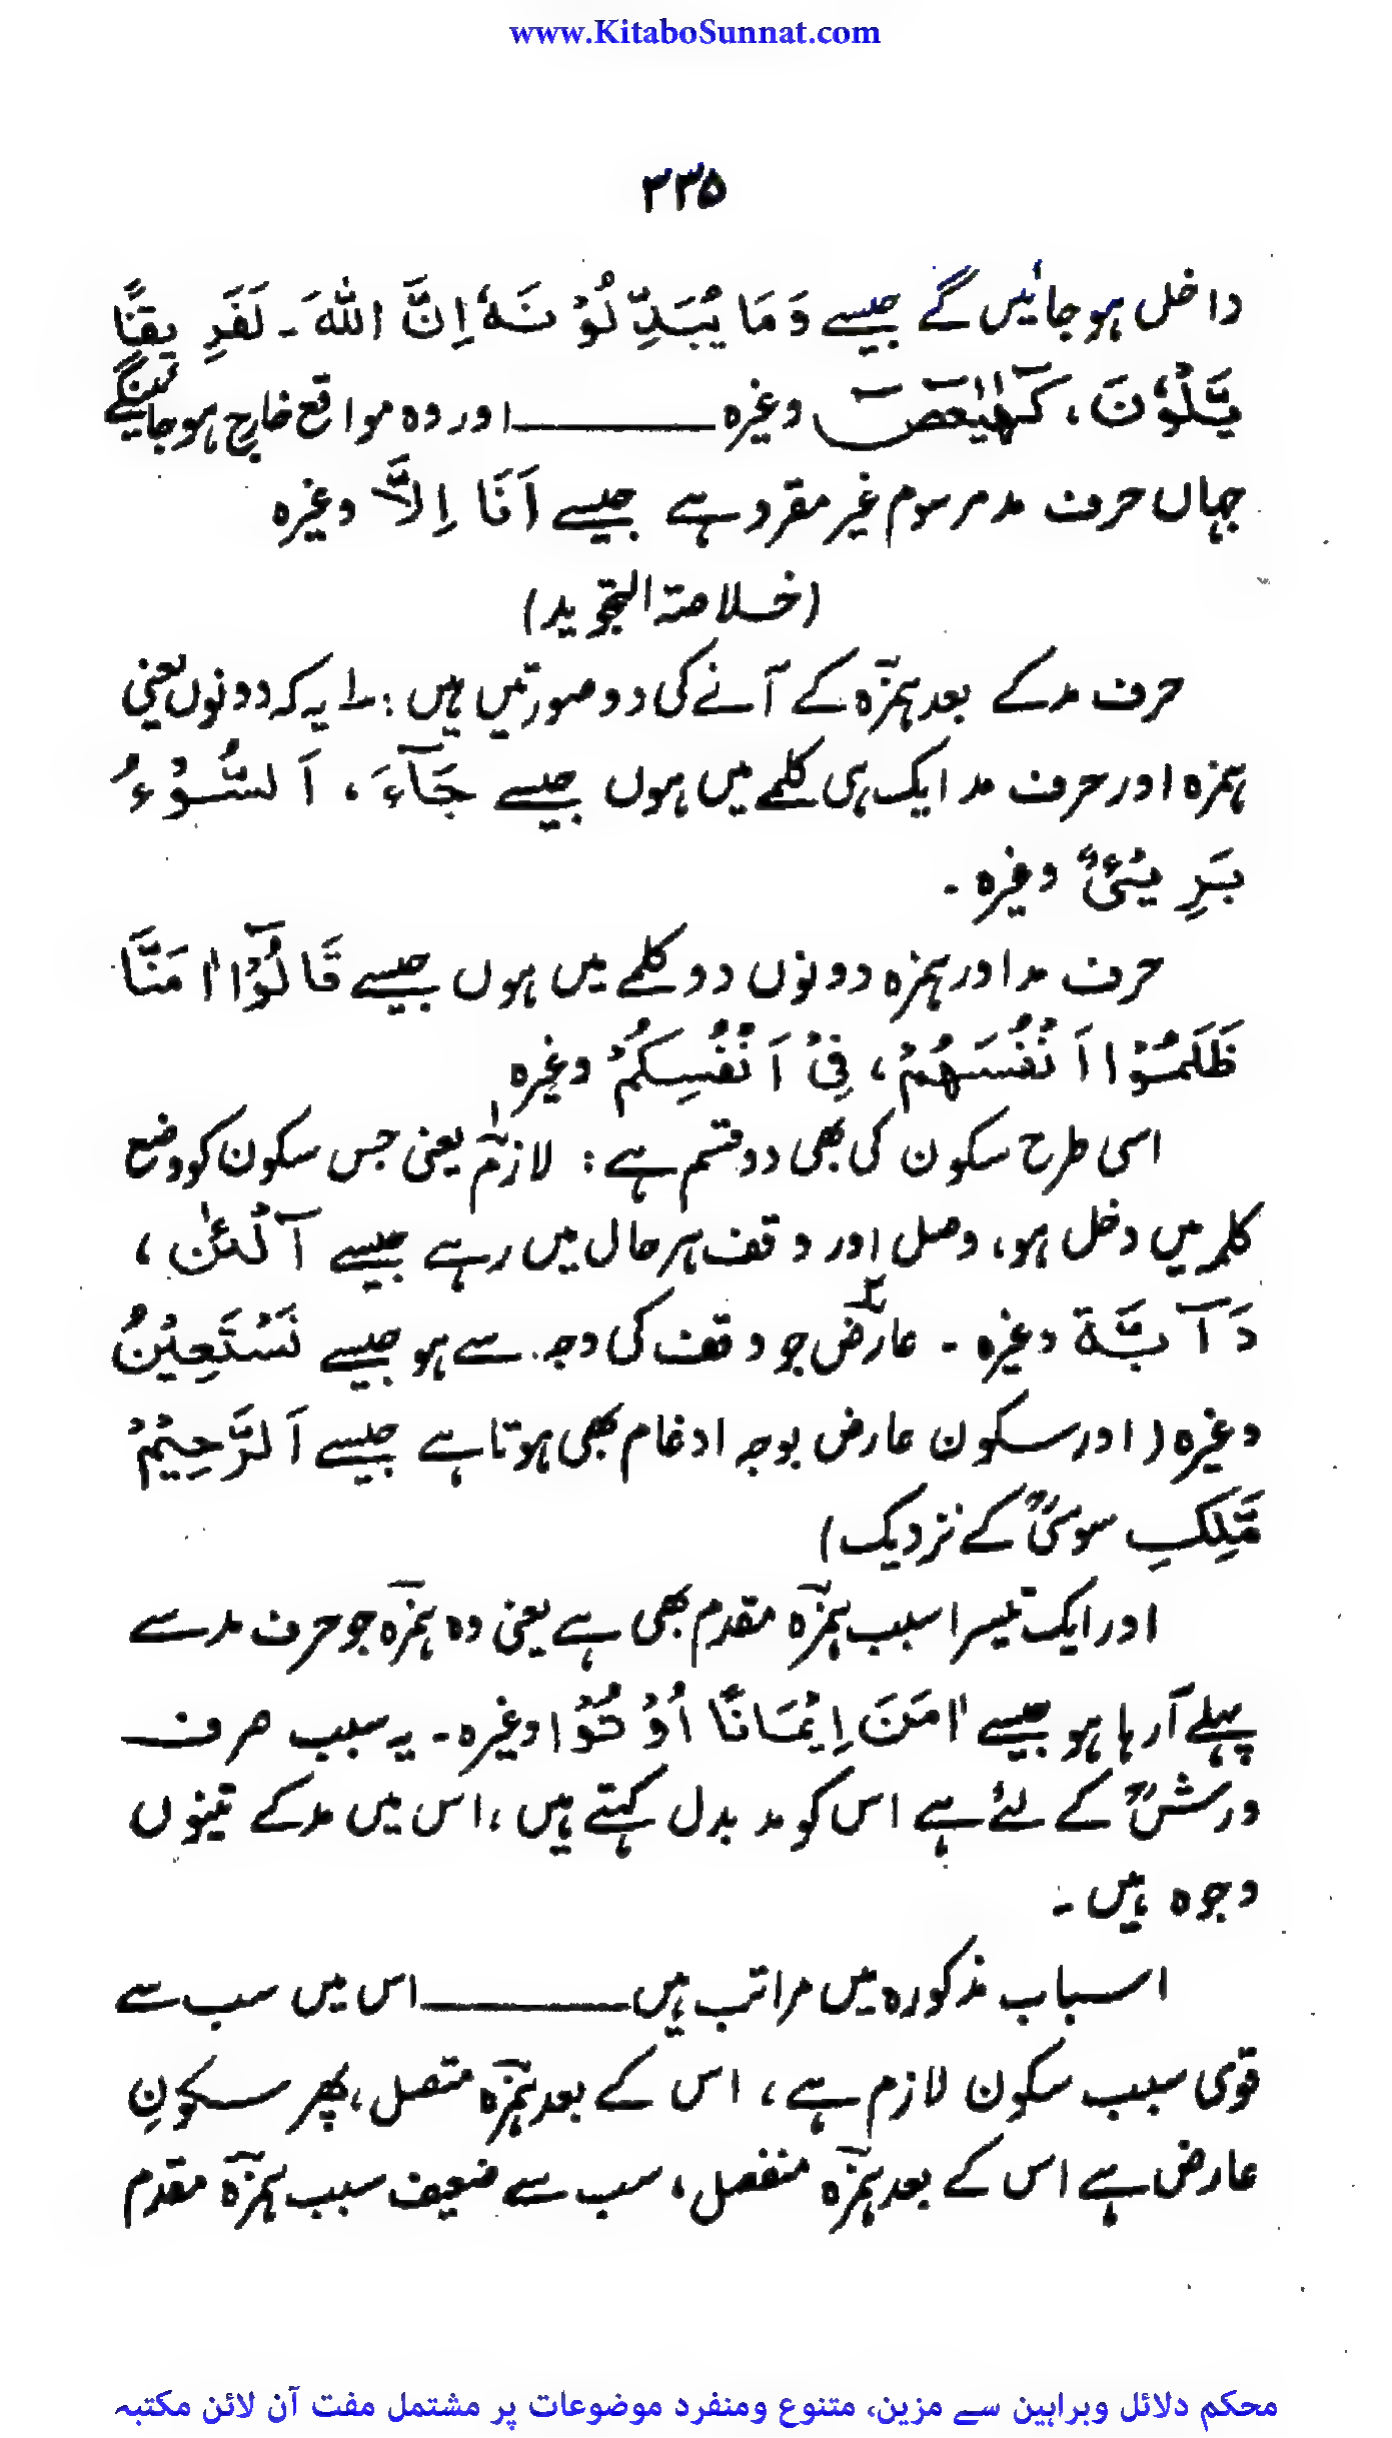 www.KitaboSunnat.com
۳۳۵
داخل ہوجائیں گے جیسے وَمَا یُبَدِّلُوْنَہٗ اِنَّ اللہَ ۔ لَفَرِیقًا
یَّلْوٗنَ، کٓھٰیٰعٓصٓ وغیرہ ــــــــــ اور وہ مواقع خارج ہوجائینگے
جہاں حرف مد مرسوم غیر مقرو ہے جیسے اَنَا اِلاَّ وغیرہ
(خلاصۃ التجوید)
حرف مد کے بعد ہمزہ کے آنے کی دو صورتیں ہیں : ۱ یہ کہ دونوں یعنی
ہمزہ اور حرف مد ایک ہی کلمے میں ہوں جیسے جَآءَ، اَلسُّوْءُ
بَرِیْٓئٌ وغیرہ ۔
حرف مد اور ہمزہ دونوں دو کلمے میں ہوں جیسے قَالُوْٓا اٰمَنَّا
ظَلَمُوْا اَنْفُسَهُمْ، فِیْ اَنْفُسِکُمْ وغیرہ
اسی طرح سکون کی بھی دو قسم ہے : لازم ۱ یعنی جس سکون کو وضع
کلمہ میں دخل ہو، وصل اور وقف ہر حال میں رہے جیسے آٰلْئٰنَ،
دَآبَّۃ وغیرہ ۔ عارض ۲ جو وقف کی وجہ سے ہو جیسے نَسْتَعِیْنُ
وغیرہ (اور سکون عارض بوجہ ادغام بھی ہوتا ہے جیسے اَلرَّحِیْمْ
مَّلِکِ سوسیؒ کے نزدیک)
اور ایک تیسرا سبب ہمزہ مقدم بھی ہے یعنی وہ ہمزہ جو حرف مد سے
پہلے آرہا ہو جیسے اٰمَنَ اِیْمَانًا اُوْتُوْا وغیرہ ۔ یہ سبب صرف
ورشؒ کے لئے ہے اس کو مد بدل کہتے ہیں، اس میں مد کے تینوں
وجوہ ہیں ۔
اسباب مذکورہ میں مراتب ہیں ــــــــــ اس میں سب سے
قوی سبب سکون لازم ہے، اس کے بعد ہمزہ متصل، پھر سکونِ
عارض ہے اس کے بعد ہمزہ منفصل، سب سے ضعیف سبب ہمزہ مقدم
محکم دلائل وبراہین سے مزین، متنوع ومنفرد موضوعات پر مشتمل مفت آن لائن مکتبہ